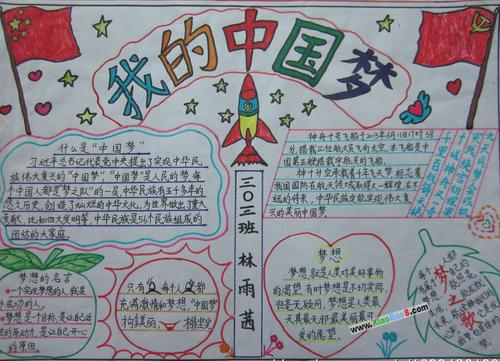 我的中国梦
什么是“中国梦”
习近平总书记代表党中央提出了实现中华民
族伟大复兴的“中国梦”“中国梦”是人民的梦,每
个中国人都是“梦之队”的一员,中华民族有五千多年的
悠久历史,创造了灿烂的中华文化,为世界做出了重大
贡献,比如四大发明等,中华民族是56个民族组成的
团结的大家庭。
神舟十号飞船于2013年6月11日17时38
分,搭载三位航天员飞向太空,本飞船是中
国第五艘搭载宇航员的飞船。
神十升空承载着千年飞天梦,标志着
我国国防在航天领域取得又一辉煌,在不
远的将来,中华民族定能实现伟大复
兴的美丽中国梦。
三〇三班 林雨茜
梦想的名言
一个实现梦想的人,就是
成功的人。
梦想是个目标,是让自己活
的原动力,是让自己开心
的原因。
只有每个人都
充满激情和梦想,“中国梦”
梦想
梦想,就是人类对美好事物
的渴望,有时梦想是不切实际,
但毫无疑问,梦想是人类最
天真最无邪最美丽最可
爱的愿望。
梦之歌
www.XiaoBao8.com